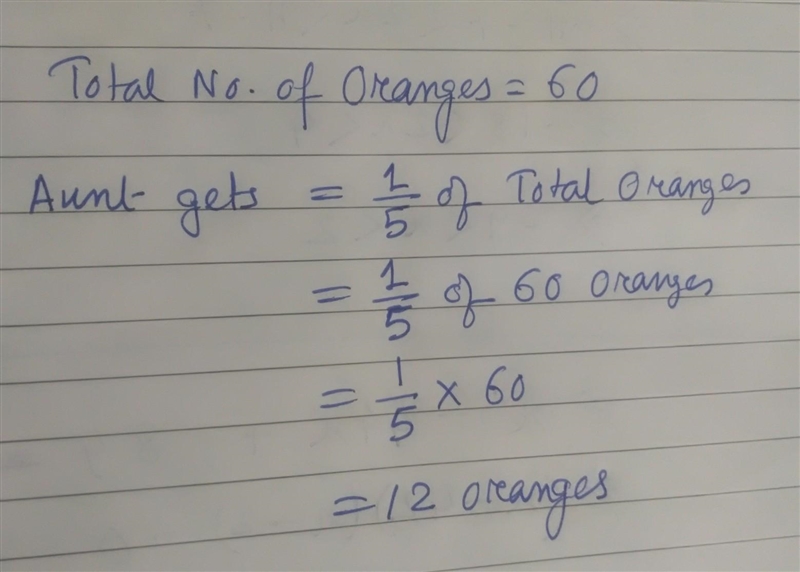 Total No. of Oranges = 60
Aunt gets = 1/5 of Total Oranges
= 1/5 of 60 Oranges
= 1/5 × 60
= 12 oranges